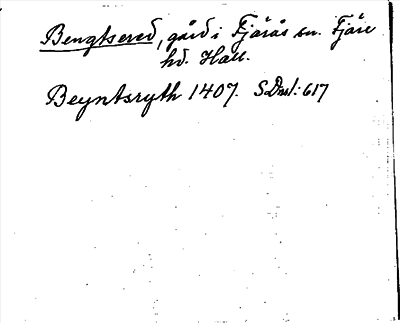 Bengtsered, gård i Fjärås sn. Fjäre
hd. Hall.
Beyntsryth 1407. SDns1:617